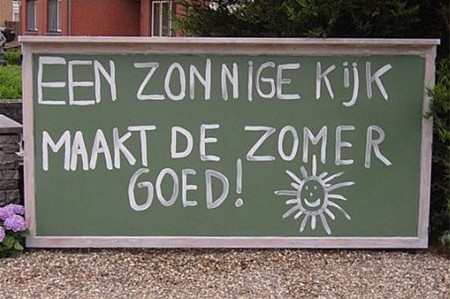 EEN ZONNIGE KIJK
MAAKT DE ZOMER
GOED!